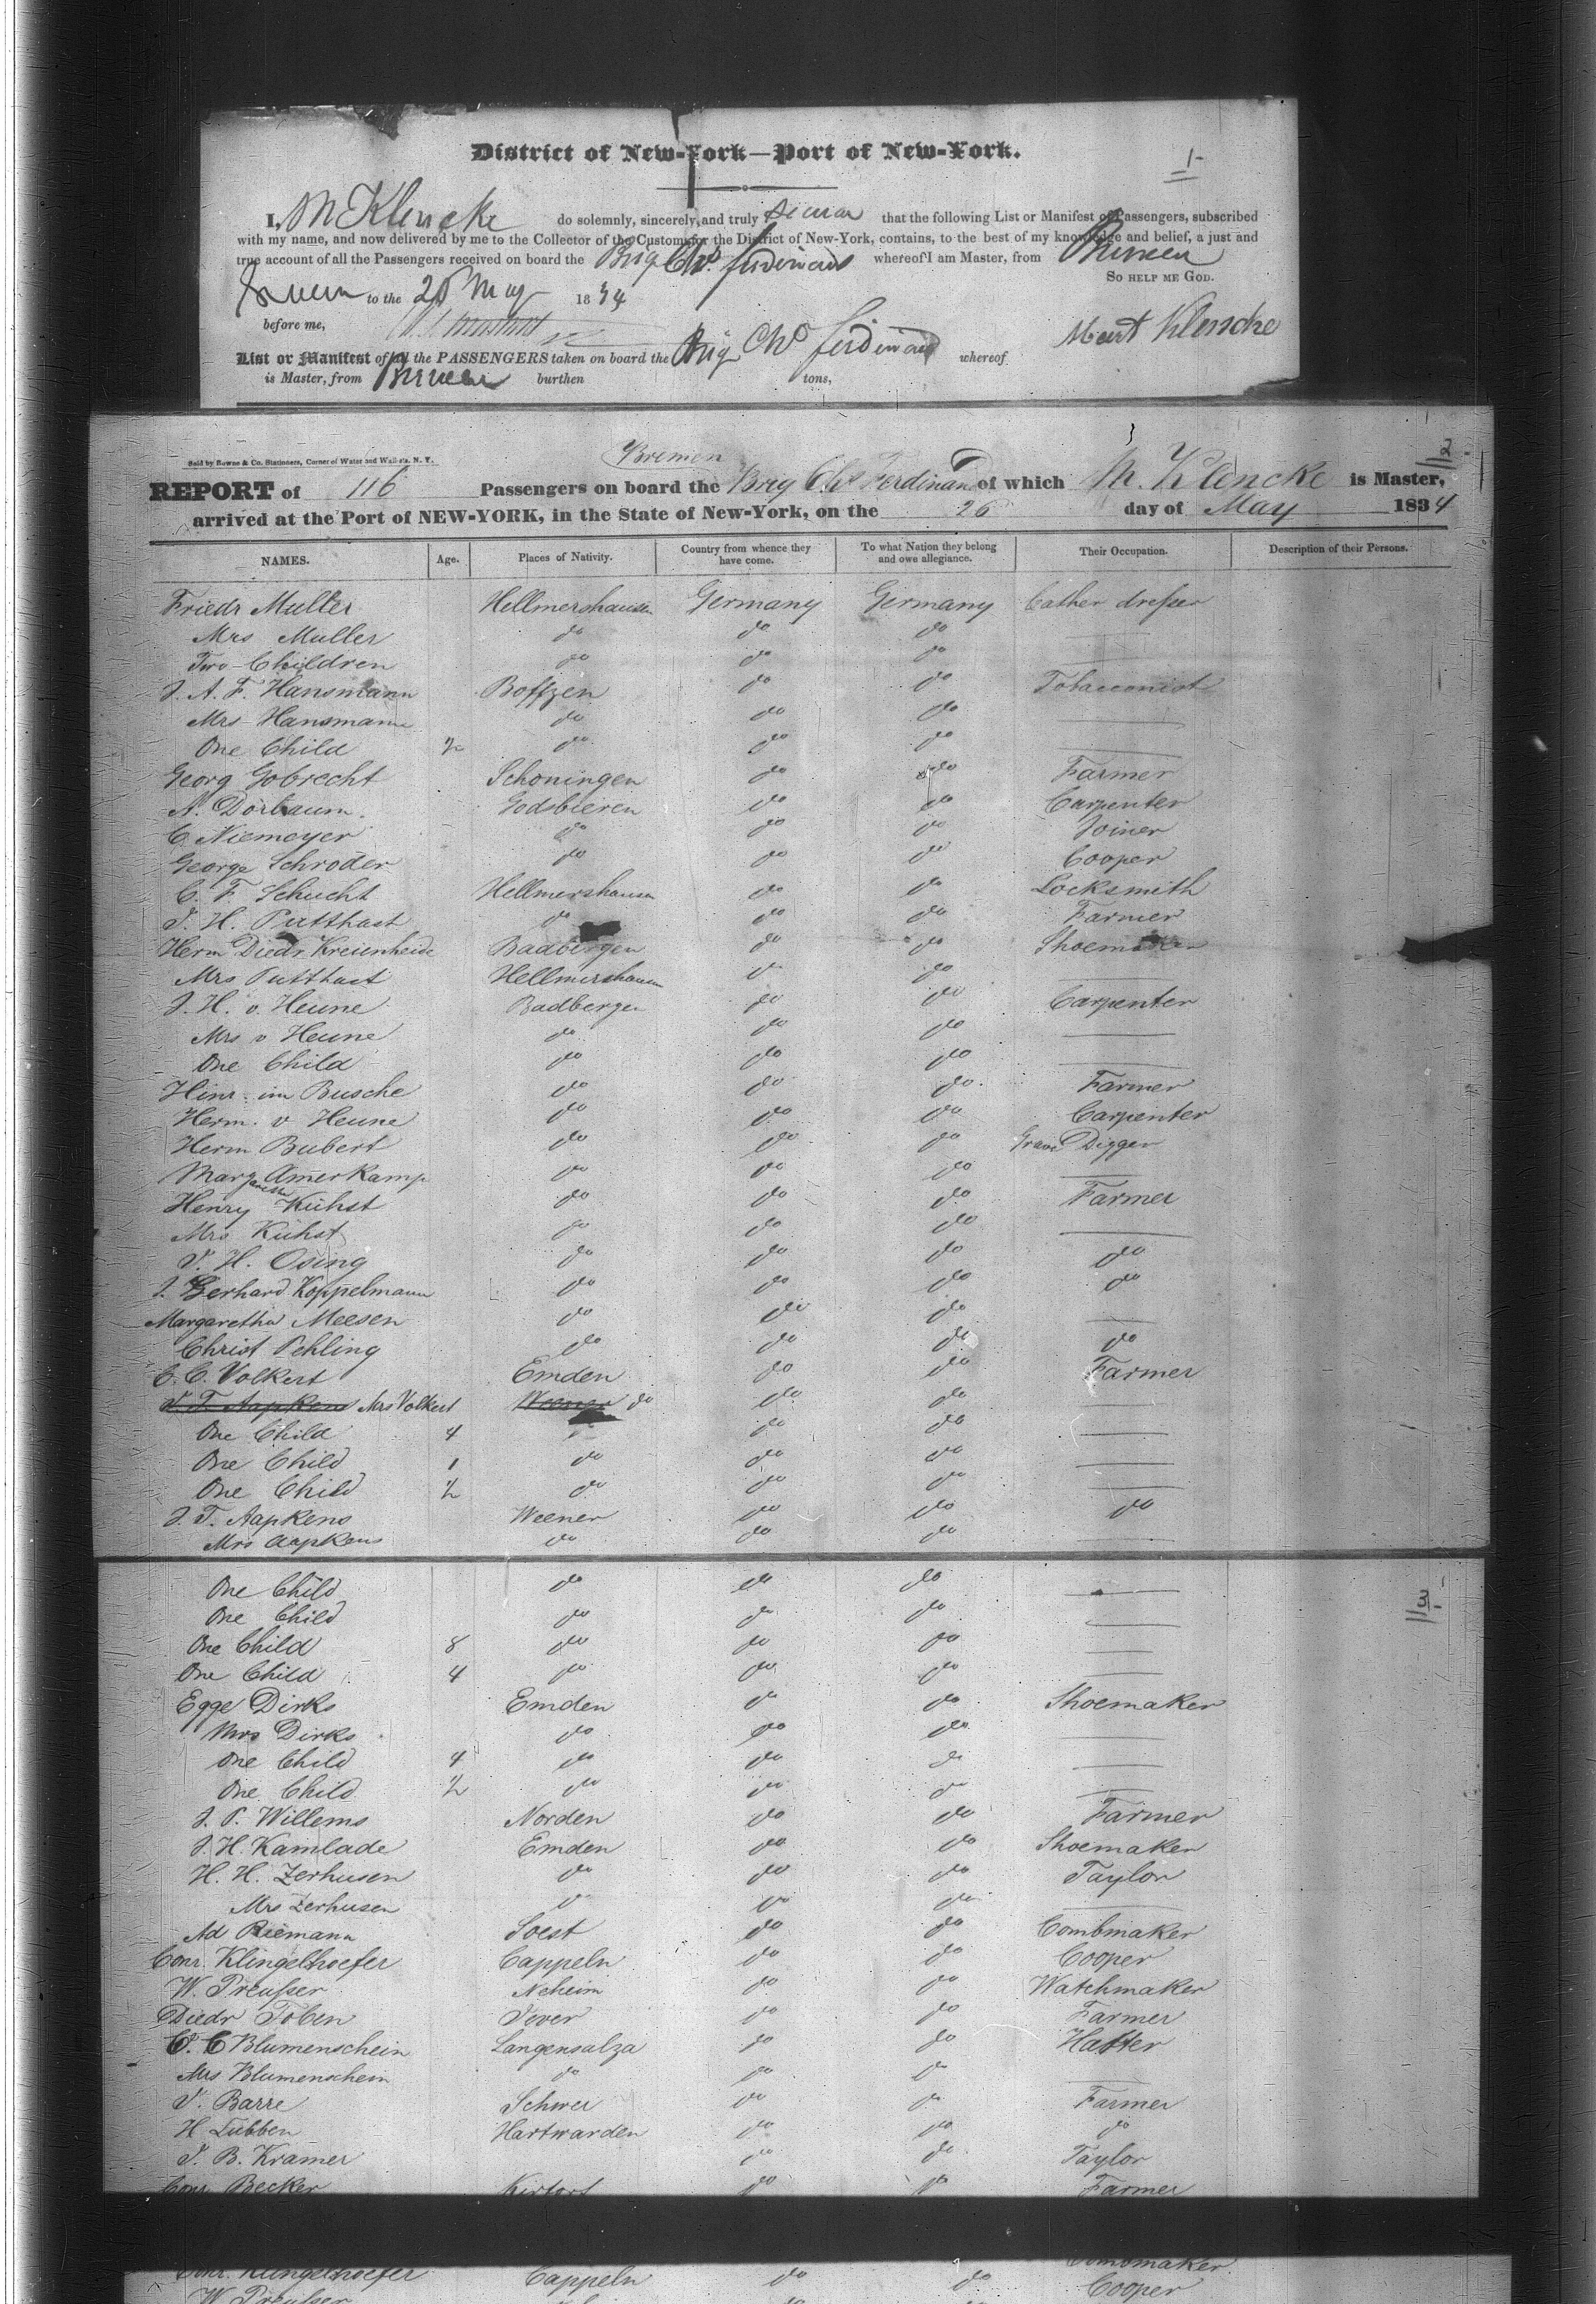 District of New-York—Port of New-York.
1-
I, M Klencke do solemnly, sincerely, and truly swear that the following List or Manifest of Passengers, subscribed
with my name, and now delivered by me to the Collector of the Customs for the District of New-York, contains, to the best of my knowledge and belief, a just and
true account of all the Passengers received on board the Brig Chs. Ferdinand whereof I am Master, from Bremen
So help me God.
Sworn to the 26 May 1834
before me,
Meint Klencke
List or Manifest of all the PASSENGERS taken on board the Brig Chs Ferdinand whereof
is Master, from Bremen burthen tons,
2-
Sold by Bowne & Co. Stationers, Corner of Water and Wall-sts. N. Y.
Bremen
REPORT of 116 Passengers on board the Brig Chs Ferdinand of which M. Klencke is Master,
arrived at the Port of NEW-YORK, in the State of New-York, on the 26 day of May 1834
NAMES. Age. Places of Nativity. Country from whence they have come. To what Nation they belong and owe allegiance. Their Occupation. Description of their Persons.
Friedr Muller Hellmershausen Germany Germany Leather dresser
Mrs Muller do do do
Two Children do do do
J. A. F. Hansmann Boffzen do do Tobacconist
Mrs Hansmann do do do
One Child ½ do do do
Georg Gobrecht Schoningen do do Farmer
A. Dorbaum. Godsbieren do do Carpenter
C. Niemeyer do do do Joiner
George Schroder do do do Cooper
C. F. Schucht Hellmershausen do do Locksmith
J. H. Putthast do do do Farmer
Herm Diedr Kreienheide Badbergen do do Shoemaker
Mrs Putthast Hellmershausen do do
J. H. v. Heune Badbergen do do Carpenter
Mrs v Heune do do do
One Child do do do
Hinr. im Busche do do do Farmer
Herm. v Heune do do do Carpenter
Herm Bubert do do do Grave Digger
Margaretha Amerkamp do do do
Henry Kuhst do do do Farmer
Mrs Kuhst do do do
J. H. Osing do do do do
J. Gerhard Koppelmann do do do do
Margaretha Meesen do do do
Christ Pehling do do do do
C. C. Volkert Emden do do Farmer
J. T. Aapkens Mrs Volkert Weener do do do
One Child 4 do do
One Child 1 do do do
One Child ½ do do do
J. T. Aapkens Weener do do do
Mrs Aapkens do do do
3-
One Child do do do
One Child do do do
One Child 8 do do do
One Child 4 do do do
Egge Dirks Emden do do Shoemaker
Mrs Dirks do do do
One Child 4 do do do
One Child ½ do do do
J. P. Willems Norden do do Farmer
J. H. Kamlade Emden do do Shoemaker
H. H. Zerhusen do do do Taylor
Mrs Zerhusen do do do
Ad Riemann Soest do do Combmaker
Conr. Klingelhoefer Cappeln do do Cooper
W. Preusser Neheim do do Watchmaker
Diedr Toben Jever do do Farmer
C. C Blumenschein Langensalza do do Hatter
Mrs Blumenschein do do do
J. Barre Schwei do do Farmer
H Lubben Hartwarden do do do
J. B. Kramer do do Taylor
Conr Becker Kirtorf do do Farmer
Combmaker
Conr. Klingelhoefer Cappeln do do Cooper
W. Preusser